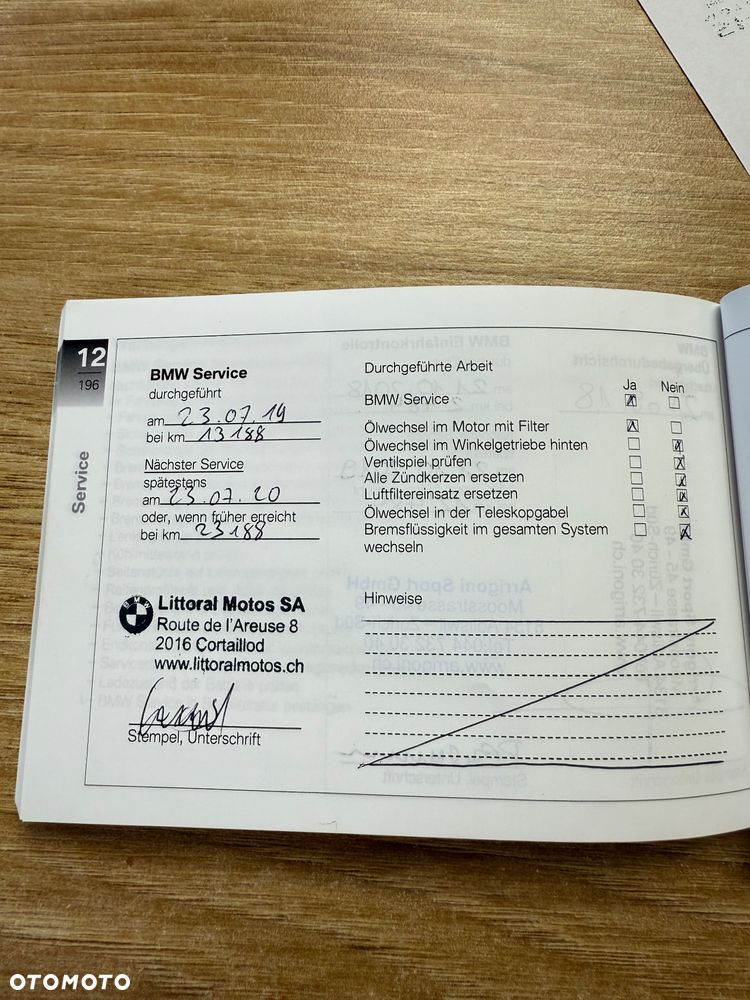 12
196
Service
BMW Service
durchgeführt
am 23.07.19
bei km 13188
Nächster Service
spätestens
am 23.07.20
oder, wenn früher erreicht
bei km 23188
BMW
Littoral Motos SA
Route de l'Areuse 8
2016 Cortaillod
www.littoralmotos.ch
Stempel, Unterschrift
Durchgeführte Arbeit
Ja Nein
BMW Service
Ölwechsel im Motor mit Filter
Ölwechsel im Winkelgetriebe hinten
Ventilspiel prüfen
Alle Zündkerzen ersetzen
Luftfiltereinsatz ersetzen
Ölwechsel in der Teleskopgabel
Bremsflüssigkeit im gesamten System
wechseln
Hinweise
OTOMOTO